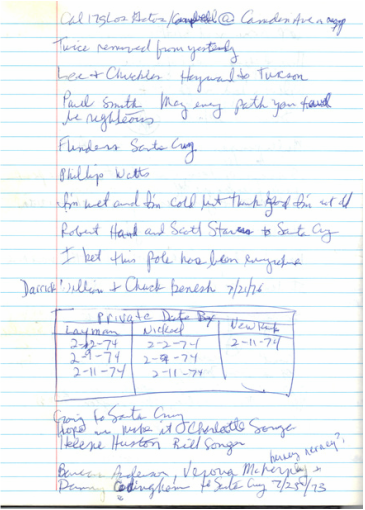 Cal 17 Los Gatos/Campbell @ Camden Ave
Twice removed from yesterday
Lee + Chuckles Hayward to Tucson
Paul Smith May every path you
be righteous
Flinders Santa Cruz
Phillip Watts
I'm wet and I'm cold but thank God I'm not old
Robert Hand and Scott to Santa Cruz
I bet this pole has been everywhere
Darrick + Chuck Benesh 7/21/76
Private Data
Layman Nickel New
2-2-74 2-2-74 2-11-74
2-9-74 2-9-74
2-11-74 2-11-74
Going to Santa Cruz
hope we make it Charlotte Songer
Helene Huston Bill Songer
Anderson, Verona +
Danny to Santa Cruz 7/25/73